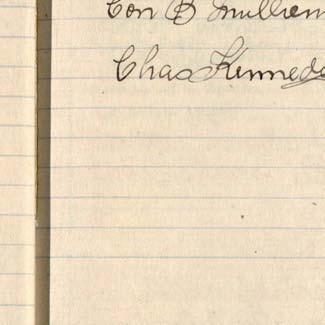 Con B Mullien
Chas Kenneda